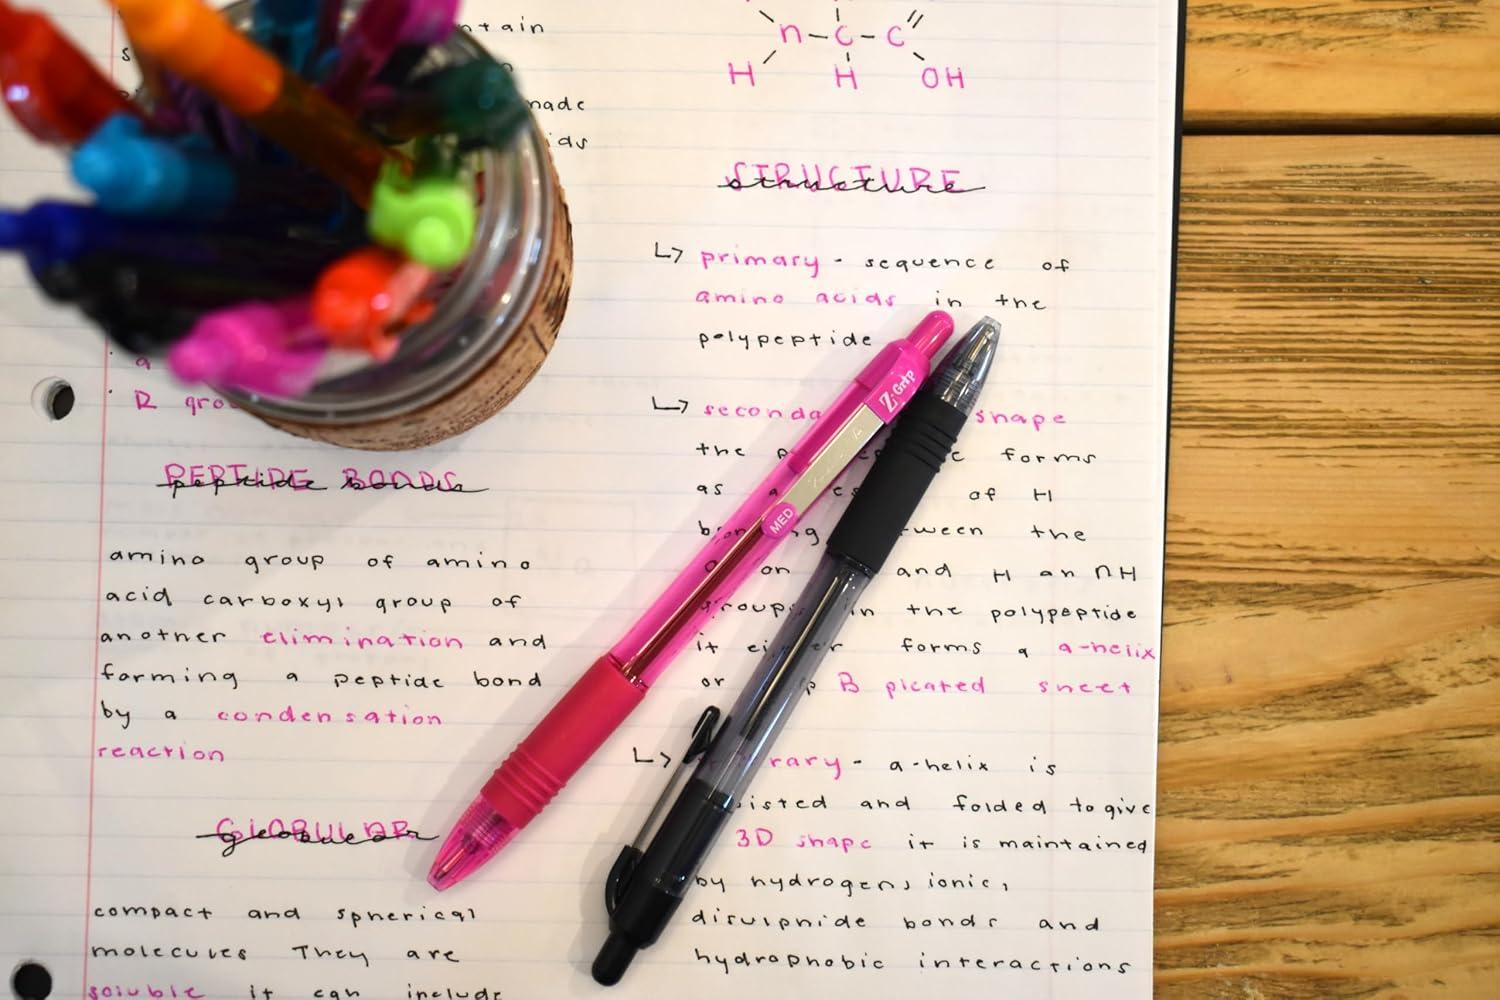 ntain
nade
ids
a
R gro
PEPTIDE BONDS
peptide bonds
amino group of amino
acid carboxyl group of
another elimination and
forming a peptide bond
by a condensation
reaction
GLOBULAR
globular
compact and spherical
molecules They are
soluble it can include
n-C-C
H H OH
STRUCTURE
structure
↳ primary - sequence of
amino acids in the
polypeptide
↳ seconda shape
the forms
as a of H
ween the
on and H an NH
groups in the polypeptide
it either forms a a-helix
or B pleated sheet
↳ rary - a-helix is
isted and folded to give
3D shape it is maintained
by hydrogen, ionic,
disulphide bonds and
hydrophobic interactions
Z-Grip
MED